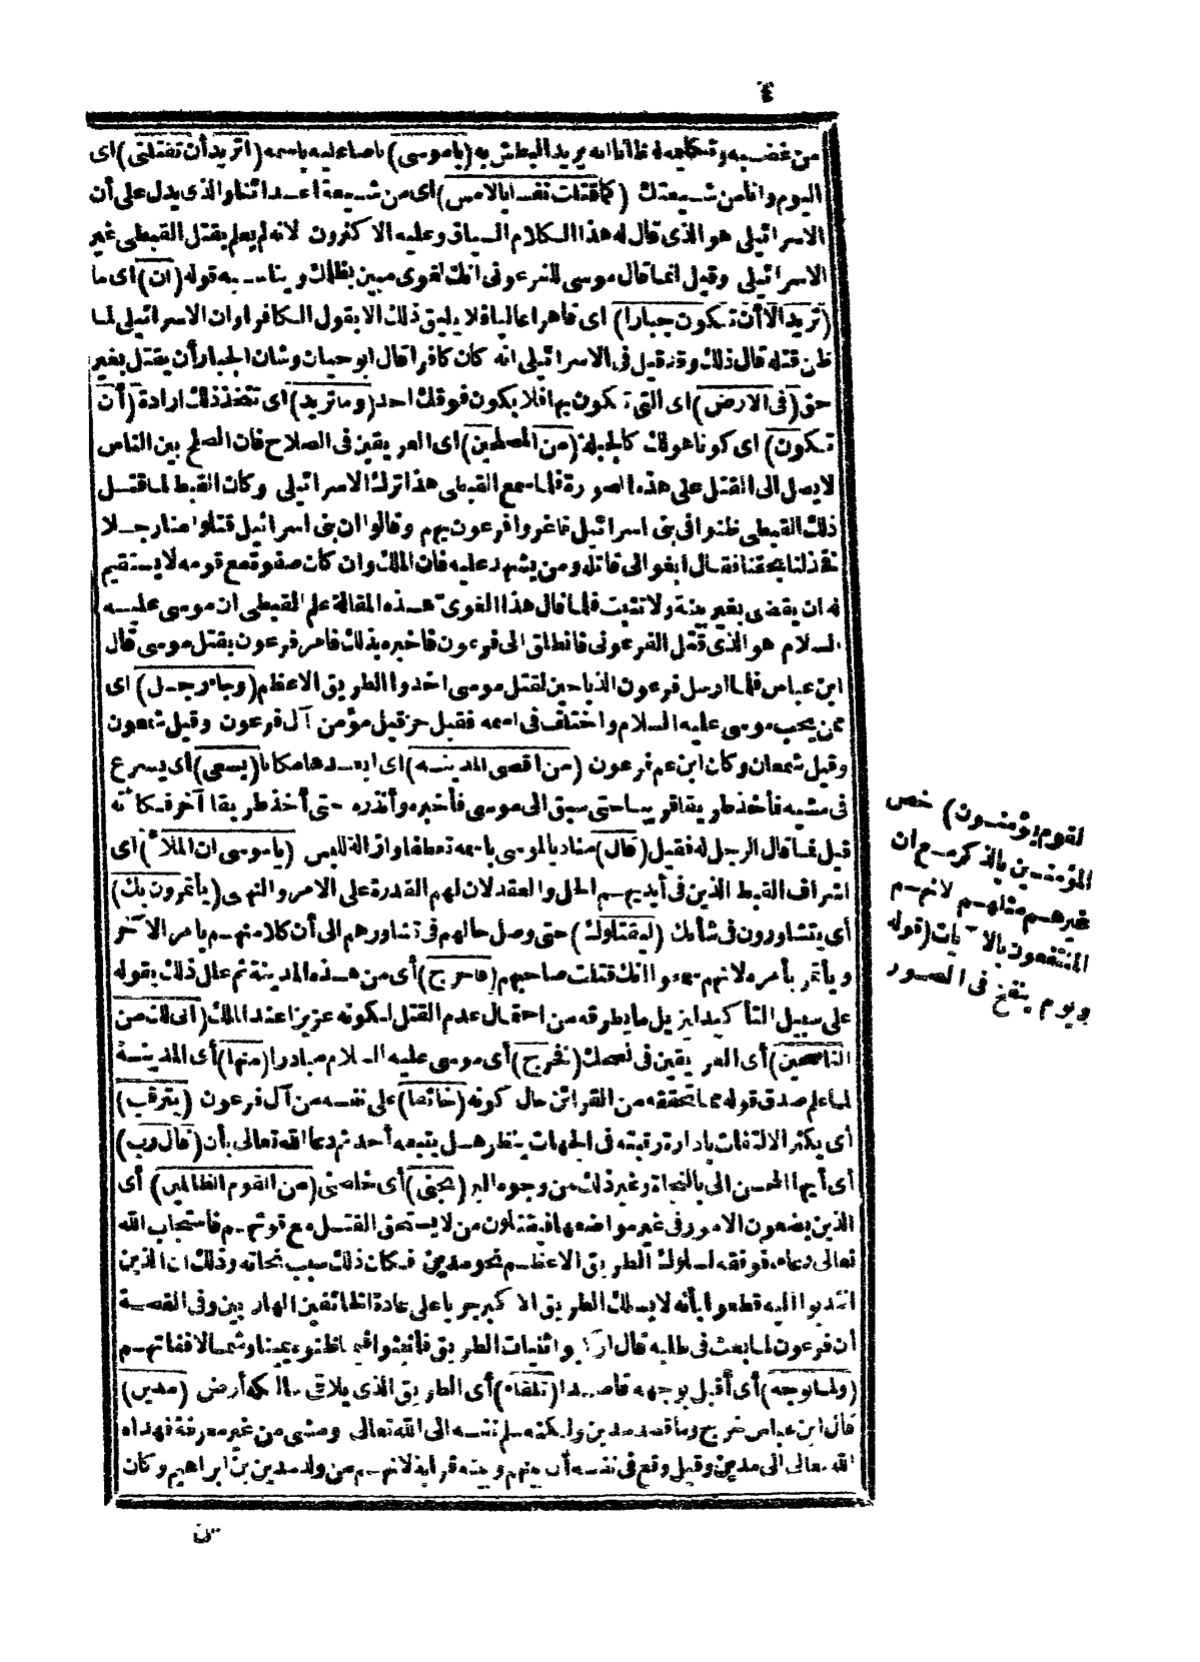 ٤
من غضبه وتكليمه له ظانا انه يريد البطش به (يا موسى) ناصا عليه باسمه (اتريد أن تقتلنى) اى
اليوم وانا من شيعتك (كما قتلت نفسا بالامس) اى من شيعة اعدائنا والذى يدل على أن
الاسرائيلى هو الذى قال له هذا الكلام السياق وعليه الاكثرون لانه لم يعلم بقتل القبطى غير
الاسرائيلى وقيل انما قال موسى للفرعونى انك لغوى مبين بظلمك ويناسبه قوله (ان) اى ما
(تريد الا أن تكون جبارا) اى قاهرا عاليا فلا يليق ذلك الا بقول الكافر او ان الاسرائيلى لما
ظن قتله قال ذلك وقد قيل فى الاسرائيلى انه كان كافرا قال ابو حيان وشان الجبار أن يقتل بغير
حق (فى الارض) اى التى تكون بها فلا يكون فوقك احد (وما تريد) اى تتخذ ذلك ارادة (أن
تكون) اى كونا هو لك كالجبلة (من المصلحين) اى العريقين فى الصلاح فان الصلح بين الناس
لا يصل الى القتل على هذه الصورة فلما سمع القبطى هذا ترك الاسرائيلى وكان القبط لما قتل
ذلك القبطى ظنوا فى بنى اسرائيل فاغروا فرعون بهم وقالوا ان بنى اسرائيل قتلوا منا رجلا
فخذ لنا بحقنا فقال ابغوا لى قاتله ومن يشهد عليه فان الملك وان كان صفوة مع قومه لا يستقيم
له ان يقضى بغير بينة ولا تثبت فلما قال هذا الغوى هذه المقالة علم القبطى ان موسى عليه
السلام هو الذى قتل الفرعونى فانطلق الى فرعون فاخبره بذلك فامر فرعون بقتل موسى قال
ابن عباس فلما ارسل فرعون الذباحين لقتل موسى اخذوا الطريق الاعظم (وجاء رجل) اى
ممن يحب موسى عليه السلام واختلف فى اسمه فقيل حزقيل مؤمن آل فرعون وقيل شمعون
وقيل شمعان وكان ابن عم فرعون (من اقصى المدينة) اى ابعدها مكانا (يسعى) اى يسرع
فى مشيه فأخذ طريقا قريبا حتى سبق الى موسى فأخبره وأنذره حتى أخذ طريقا آخر فكأنه
قيل فما قال الرجل له فقيل (قال) مناديا لموسى باسمه تعطفا وازالة للبس (يا موسى ان الملأ) اى
اشراف القبط الذين فى أيديهم الحل والعقد لان لهم القدرة على الامر والنهى (يأتمرون بك)
أى يتشاورون فى شأنك (ليقتلوك) حتى وصل حالهم فى تشاورهم الى أن كلا منهم يامر الآخر
ويأتمر بأمره لانهم سمعوا انك قتلت صاحبهم (فاخرج) أى من هذه المدينة ثم علل ذلك بقوله
على سبيل التأكيد ليزيل ما يطرقه من احتمال عدم القتل لكونه عزيزا عند الملك (انى لك من
الناصحين) أى العريقين فى نصحك (فخرج) أى موسى عليه السلام مبادرا (منها) أى المدينة
لما علم صدق قوله مما تحققه من القرائن حال كونه (خائفا) على نفسه من آل فرعون (يترقب)
أى يكثر الالتفات بادارة رقبته فى الجهات ينظر هل يتبعه أحد ثم دعا الله تعالى بأن (قال رب)
أى أيها المحسن الى بالنجاة وغير ذلك من وجوه البر (نجنى) أى خلصنى (من القوم الظالمين) أى
الذين يضعون الامور فى غير مواضعها فيقتلون من لا يستحق القتل مع قوتهم فاستجاب الله
تعالى دعاءه فوفقه لسلوك الطريق الاعظم نحو مدين فكان ذلك سبب نجاته وذلك ان الذين
انتدبوا اليه قطعوا بأنه لا يسلك الطريق الاكبر جريا على عادة الخائفين الهاربين وفى القصة
أن فرعون لما بعث فى طلبه قال اركبوا ثنيات الطريق فأنبثوا فيما ظنوه يمينا وشمالا ففاتهم
(ولما توجه) أى أقبل بوجهه قاصدا (تلقاء) أى الطريق الذى يلاقى سالكه أرض (مدين)
قال ابن عباس خرج وما قصد مدين ولكنه سلم نفسه الى الله تعالى ومشى من غير معرفة فهداه
الله تعالى الى مدين وقيل وقع فى نفسه أن بينهم وبينه قرابة لانهم من ولد مدين بن ابراهيم وكان
لقوم يؤمنون) خص
المؤمنين بالذكر مع ان
غيرهم مثلهم لانهم
المنتفعون بالآيات (قوله
ويوم ينفخ فى الصور